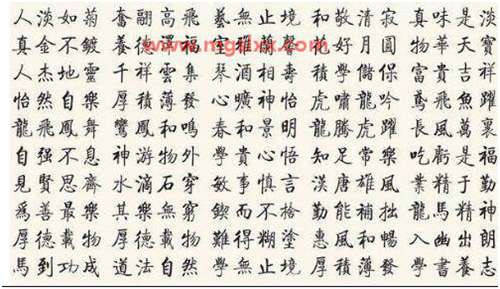 人淡如菊 奮翮高飛 藝無止境 和敬清寂 真味是淡
真金不鍍 養德 福 好月圓 物華天寶
www.mgzxzs.com
人杰地靈 千祥雲集 琴 酒 積學儲保 富貴吉祥
怡然自樂 厚積薄發 心曠神怡 虎嘯龍吟 鳶飛魚躍
龍飛鳳舞 鸞鳳和鳴 春和景明 龍騰虎躍 長風萬裏
自强不息 神游物外 學貴心悟 知足常樂 吃虧是福
見賢思齊 水滴石穿 敏事慎言 漢唐雄風 業精于勤
爲善最樂 其樂無窮 鍥而不捨 勤能補拙 龍馬精神
厚德載物 厚德載物 難得糊塗 惠風和暢 入幽出朗
馬到功成 道法自然 學無止境 厚積薄發 學書養志